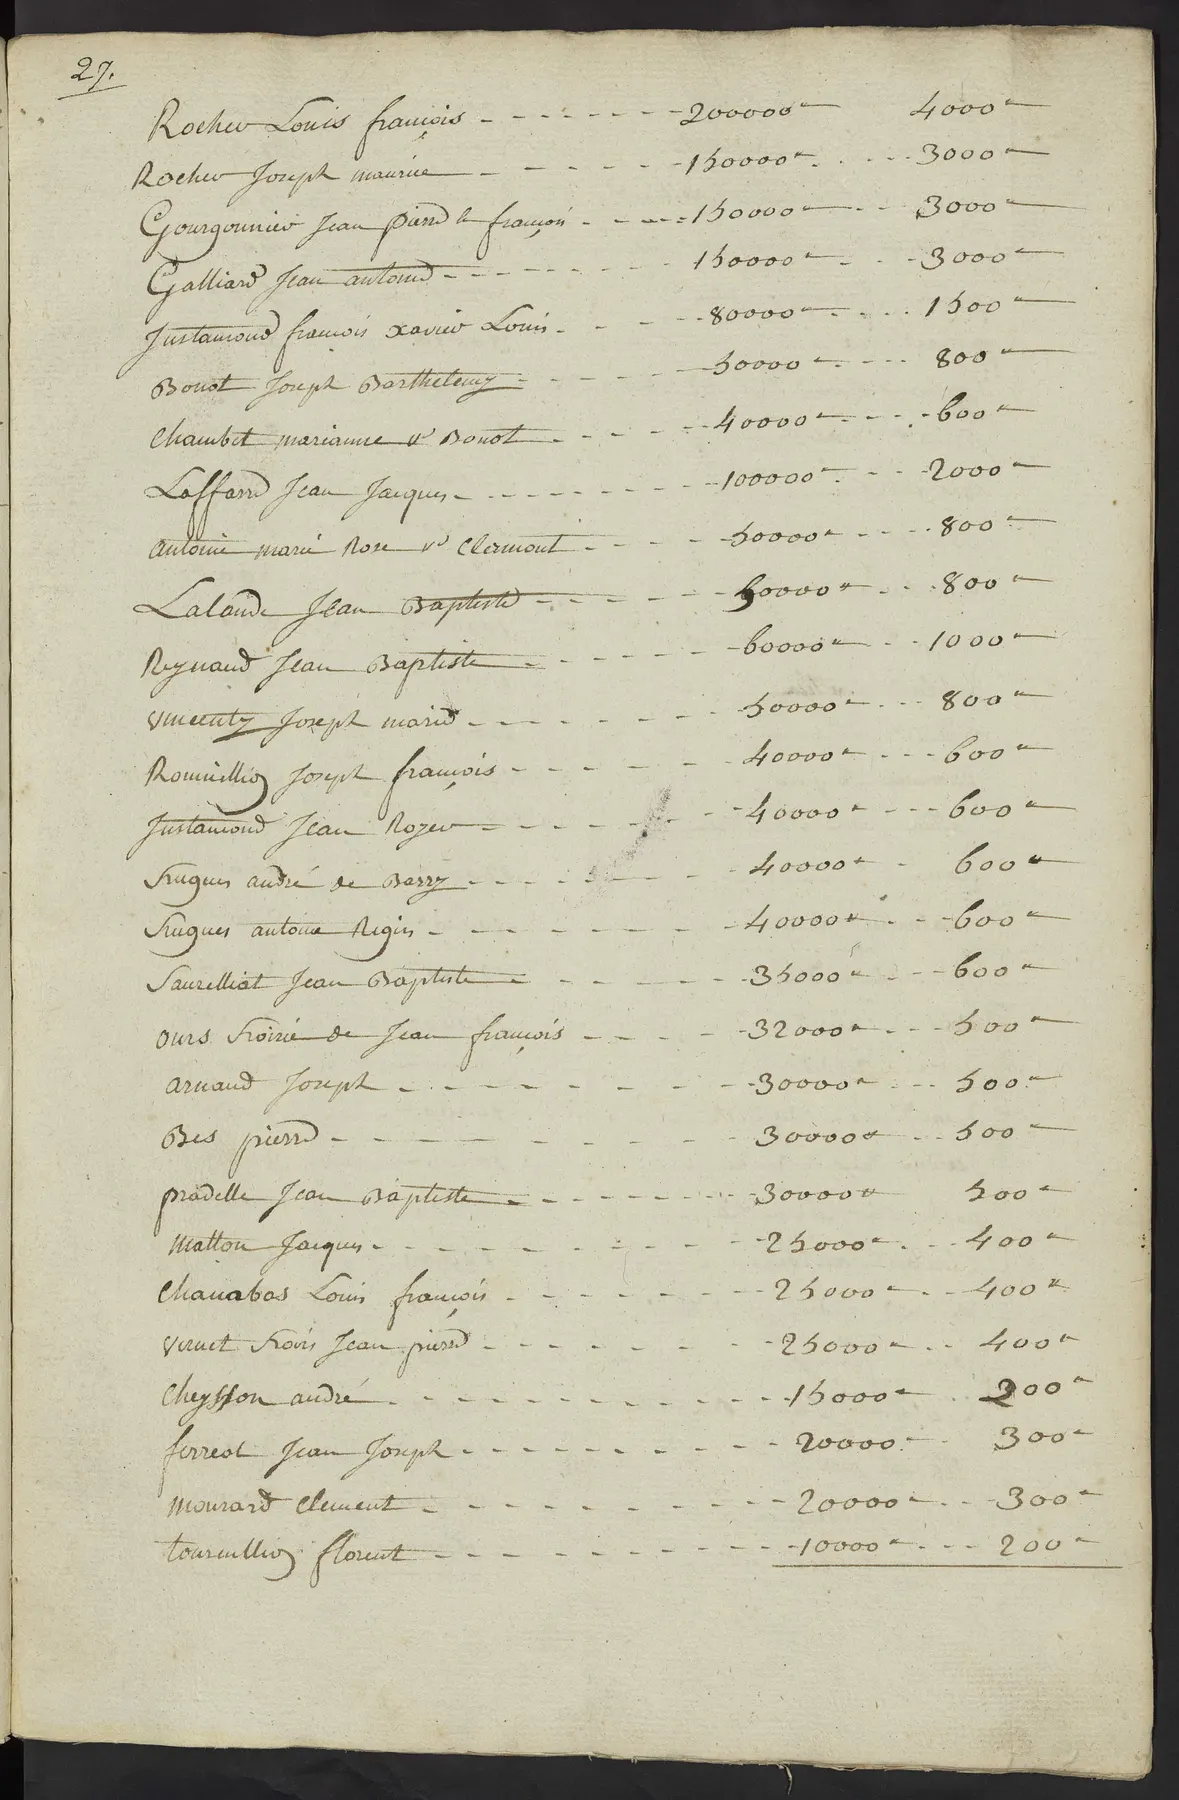 27.
Rocher Louis françois - - - - - - 200000# 4000#
Rocher Joseph maurice - - - - - 150000# - - - 3000#
Gourgounier Jean Pierre le françois - - - - 150000# - - 3000#
Galliard Jean antoine - - - - - - 150000# - - - 3000#
Justamond françois xavier Louis - - - - 80000# - - - 1500#
Bonot Joseph Barthelemy - - - - - 50000# - - - 800#
Chambet marianne ve Bonot - - - - 40000# - - - 600#
Laffard Jean Jacques - - - - - - 100000# - - 2000#
antoine marie Rose ve Clermont - - - - 50000# - - - 800#
Lalande Jean Baptiste - - - - - 50000# - - - 800#
Reynaud Jean Baptiste - - - - - 60000# - - - 1000#
Vincenty Joseph marie - - - - - - 50000# - - - 800#
Romieillion Joseph françois - - - - - 40000# - - - 600#
Justamond Jean Rozer - - - - - 40000# - - - 600#
andré de Barry - - - - - 40000# - 600#
antoine Regis - - - - - - 40000# - - 600#
Saurelliat Jean Baptiste - - - - - 35000# - - - 600#
ours de Jean françois - - - - 32000# - - - 500#
arnaud Joseph - - - - - - - 30000# - - - 500#
Bes pierre - - - - - - - 30000# - - 500#
pradelle Jean Baptiste - - - - - 30000# 500#
Matton Jacques - - - - - - - 25000# - - 400#
Chanabas Louis françois - - - - - - 25000# - - 400#
Jean pierre - - - - - - 25000# - - 400#
Cheysson andré - - - - - - - 15000# - 200#
ferreol Jean Joseph - - - - - - - 20000# - 300#
Mourard Clement - - - - - - - 20000# - - 300#
tournillion florent - - - - - - - 10000# - - - 200#